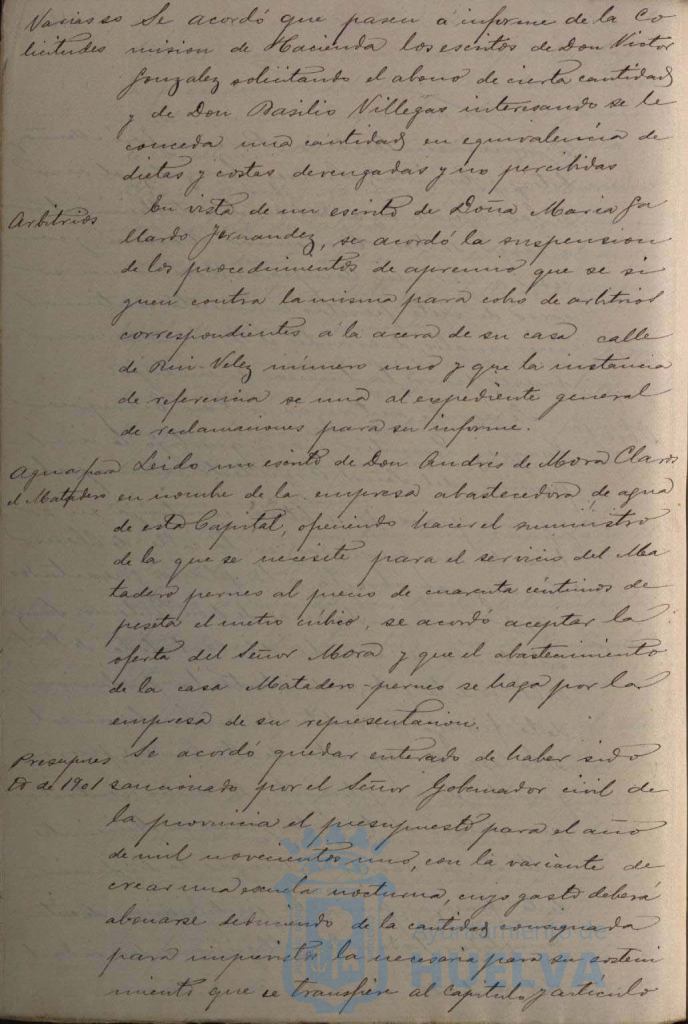 Varias so Se acordó que pasen á informe de la Co
licitudes mision de Hacienda los escritos de Don Victor
Gonzalez solicitando el abono de cierta cantidad
y de Don Basilio Villegas interesando se le
conceda una cantidad en equivalencia de
dietas y costas devengadas y no percibidas
En vista de un escrito de Doña Maria Ga
Arbitrios llardo Fernandez, se acordó la suspension
de los procedimientos de apremio que se si
guen contra la misma para cobro de arbitrios
correspondientes á la acera de su casa calle
de Rui-Velez número uno y que la instancia
de referencia se una al expediente general
de reclamaciones para su informe.
Agua para Leido un escrito de Don Andrés de Mora Claros
el Matadero en nombre de la empresa abastecedora de agua
de esta Capital, ofreciendo hacer el suministro
de la que se necesite para el servicio del Ma
tadero pernes al precio de cuarenta céntimos de
peseta el metro cúbico, se acordó aceptar la
oferta del Señor Mora y que el abastecimiento
de la casa Matadero-pernes se haga por la
empresa de su representacion.
Presupues Se acordó quedar enterado de haber sido
to de 1901 sancionado por el Señor Gobernador civil de
la provincia el presupuesto para el año
de mil novecientos uno, con la variante de
crear una escuela nocturna, cuyo gasto deberá
abonarse deduciendo de la cantidad consignada
para imprevistos la necesaria para su sosteni
miento que se transfiere al capitulo y articulo
Ayuntamiento de
HUELVA